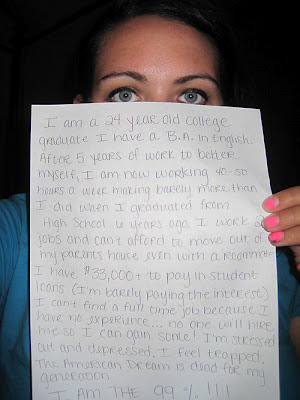 I am a 24 year old college
graduate I have a B.A. in English.
After 5 years of work to better
myself, I am now working 40-50
hours a week making barely more than
I did when I graduated from
High School 6 years ago. I work 2
jobs and can't afford to move out of
my parents house even with a roommate
I have $33,000+ to pay in student
loans (I'm barely paying the interest)
I can't find a full time job because I
have no experience... no one will hire
me so I can gain some! I'm stressed
out and depressed. I feel trapped.
The American Dream is dead for my
generation.
I AM THE 99%!!!